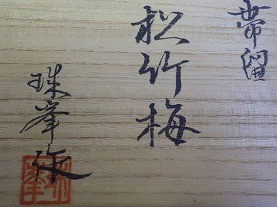 帯留
松竹梅
珠峯作